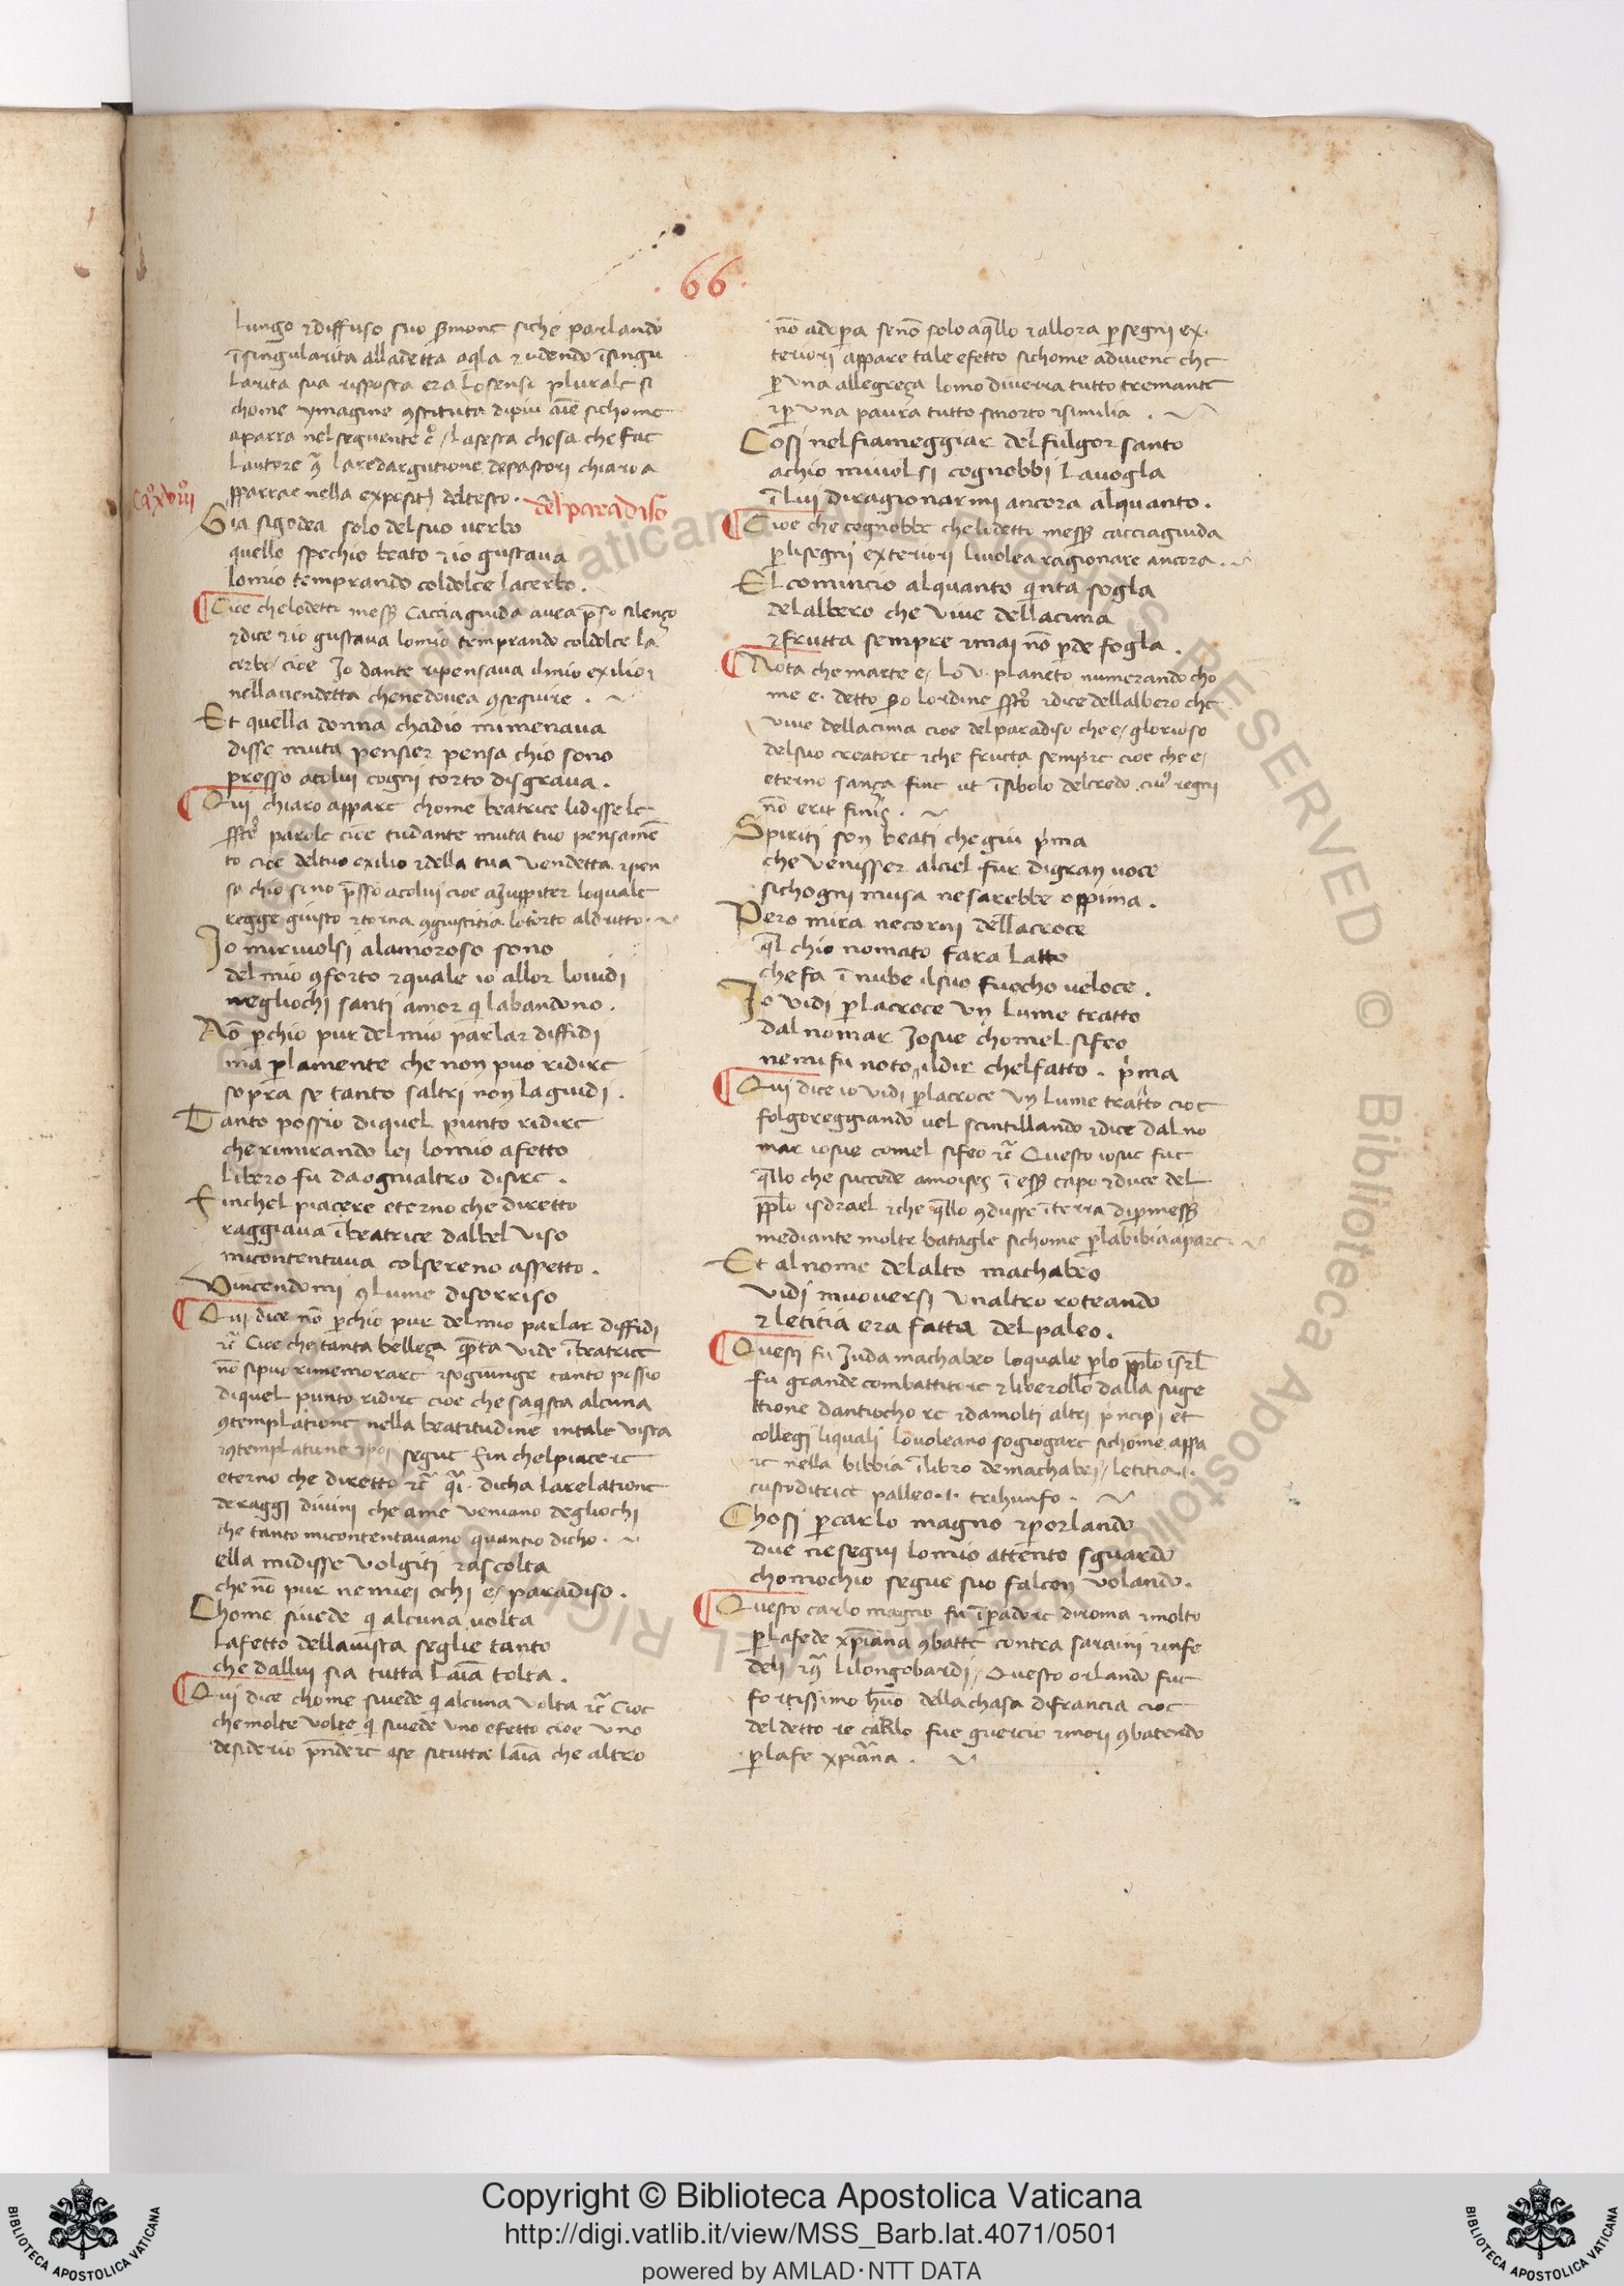 .66.
lungo ⁊diffuso suo ẜmone siche parlando
ĩsingularita alladetta aq̃la ⁊ udendo ĩsingu
larita sua risposta era losenso plurale si
chome ymagine ꝯstituta dipiu aĩe sichome
aparra nel seguente cº / lasesta chosa che fae
lautore q̃ laredargutione depastori chiaro a
pparrae nella expositõ deltesto.
Caºxviiiº
del paradiso
Gia sigodea solo del suo verbo
quello spechio beato ⁊ io gustava
lomio temprando coldolce lacerbo.
Cioe chelodetto messẜ Cacciaguida avea p̃so silenço
⁊dice ⁊io gustava lomio temprando coldolce la
cerbo / cioe Io dante ripensava ilmio exilio ⁊
nellavendetta chenedovea ꝯseguire .
Et quella donna chadio mimenava
disse muta pensier pensa chio sono
presso acolui cogni torto disgrava.
Qui chiaro appare chome beatrice lidisse le
parole cioe tudante muta tuo pensamẽ
to cioe deltuo exilio ⁊della tua vendetta ⁊pen
sa chio sono p̃sso acolui cioe aiuppiter loquale
regge giusto ⁊torna ꝯgiustitia lotorto aldritto.
Io mirivolsi alamoroso sono
del mio ꝯforto ⁊quale io allor lovidi
negliochi santi amor q̃ labandono.
Nõ ꝑchio pur del mio parlar diffidi
ma ꝑlamente che non puo ridire
sopra se tanto saltri non laguidi.
Tanto possio diquel punto ridire
cherimirando lei lomio afetto
libero fu daognialtro disire.
Finchel piacere eterno che diretto
raggiava ĩbeatrice dalbel viso
micontentava colsereno aspetto.
Vincendomi ꝯlume disorriso
Qui dice nõ ꝑchio pur delmio parlar diffidi
⁊c̃ Cioe che tanta belleça q̃ta vide ĩbeatrice
nõ sipuo rimemorare ⁊sogiunge tanto possio
diquel punto ridire cioe che saq̃sta alcuna
ꝯtemplatione nella beatitudine intale vista
⁊ꝯtemplatione ⁊poi segue fin chelpiacere
eterno che diretto ⁊c̃ q̃i. dicha larelatione
deraggi divini che ame veniano degliochi
che tanto micontentavano quantio dicho.
ella midisse volgiti ⁊ascolta
che nõ pur nemiei ochi e / paradiso.
Chome sivede q̃ alcuna volta
lafetto dellavista seglie tanto
che dallui sia tutta laĩa tolta.
Qui dice chome sivede q̃ alcuna volta ⁊c̃ Cioe
chemolte volte q̃ sivede uno efetto cioe uno
desiderio p̃ndere ase situtta laĩa che altro
nõ adopra senõ solo aq̃llo ⁊allora ꝑsegni ex
teriori appare tale efetto sichome adiviene che
ꝑ una allegreça lomo diverra tutto tremante
⁊ꝑ una paura tutto smorto ⁊similia .
Cosi nel fiameggiar delfulgor santo
achio mivolsi cognobbi lavogla
ĩ lui diragionarmi ancora alquanto.
Cioe che cognobbe chelodetto messẜ cacciaguida
ꝑlisegni exteriori livolea ragionare ancora.
El comincio alquanto q̃nta sogla
delalbero che vive dellacima
⁊frutta sempre ⁊mai nõ ꝑde fogla.
Nota che marte e / lo .v. planeto numerando cho
me e. detto lordine ⁊dice dellalbero che
vive dellacima cioe delparadiso che e / glorioso
delsuo creatore ⁊che fructa sempre cioe che e /
eterno sança fine ut ĩsibolo delcredo cui regni
nõ erit finis.
Spiriti son beati che giu p̃ma
che venisser alciel fur digran voce
sichogni musa nesarebbe oppima.
Pero mira necorni dellacroce
q̃l chio nomato fara latto
che fa ĩ nube ilsuo fuocho veloce.
Io vidi ꝑlacroce un lume tratto
dal nomar Iosue chomel sifeo
nemi fu noto ildir chelfatto. p̃ma
Qui dice io vidi ꝑlacroce un lume tratto cioe
folgoreggiando vel scintillando ⁊dice dal no
mar iosue comel sifeo ⁊c̃ Questo iosue fue
q̃llo che succede amoises ĩ essẜ capo ⁊duce del
pp̃lo isdrael ⁊che q̃llo ꝯdusse ĩ terra dipromess
mediante molte batagle sichome ꝑlabibia apare
Et alnome delalto machabeo
vidi muoversi unaltro roteando
⁊ letitia era fatta del paleo.
Questi fu Iuda machabeo loquale ꝑlo pp̃lo isrl̃
fu grande combattitore ⁊liberollo dalla suge
ttione dantiocho re ⁊damolti altri p̃ncipi et
collegi liquali lovoleano sogiogare sichome appa
re nella bibbia ĩlibro demachabei / letitia .i.
custoditrice palleo .i. trihunfo .
Chosi ꝑcarlo magno ⁊ꝑorlando
due nesegui lomio attento sguardo
chomochio segue suo falcon volando.
Questo carlo magno fu ĩꝑadore diroma ⁊molto
ꝑlafede xp̃iana ꝯbatte contra saraini ⁊infe
deli ⁊q̃ lilongobardi / Questo orlando fue
fortissimo hũo della chasa difrancia cioe
del detto re carlo fue guercio ⁊mori ꝯbatendo
ꝑlafe xp̃iana .
Copyright © Biblioteca Apostolica Vaticana
http://digi.vatlib.it/view/MSS_Barb.lat.4071/0501
powered by AMLAD·NTT DATA
BIBLIOTECA APOSTOLICA VATICANA
BIBLIOTECA APOSTOLICA VATICANA